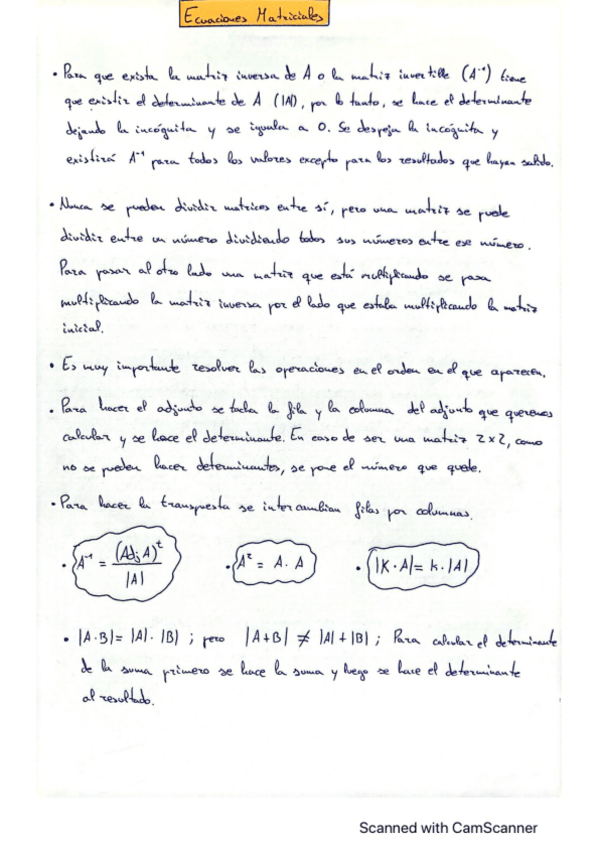 Ecuaciones Matriciales
• Para que exista la matriz inversa de A o la matriz invertible (A⁻¹) tiene
que existir el determinante de A (|A|), por lo tanto, se hace el determinante
dejando la incógnita y se iguala a 0. Se despeja la incógnita y
existirá A⁻¹ para todos los valores excepto para los resultados que hayan salido.
• Nunca se pueden dividir matrices entre sí, pero una matriz se puede
dividir entre un número dividiendo todos sus números entre ese número.
Para pasar al otro lado una matriz que está multiplicando se pasa
multiplicando la matriz inversa por el lado que estaba multiplicando la matriz
inicial.
• Es muy importante resolver las operaciones en el orden en el que aparecen.
• Para hacer el adjunto se tacha la fila y la columna del adjunto que queremos
calcular y se hace el determinante. En caso de ser una matriz 2x2, como
no se pueden hacer determinantes, se pone el número que quede.
• Para hacer la transpuesta se intercambian filas por columnas.
• A⁻¹ = (Adj A)ᵗ / |A| • A² = A · A • |K · A| = k · |A|
• |A·B| = |A| · |B| ; pero |A+B| ≠ |A| + |B| ; Para calcular el determinante
de la suma primero se hace la suma y luego se hace el determinante
al resultado.
Scanned with CamScanner